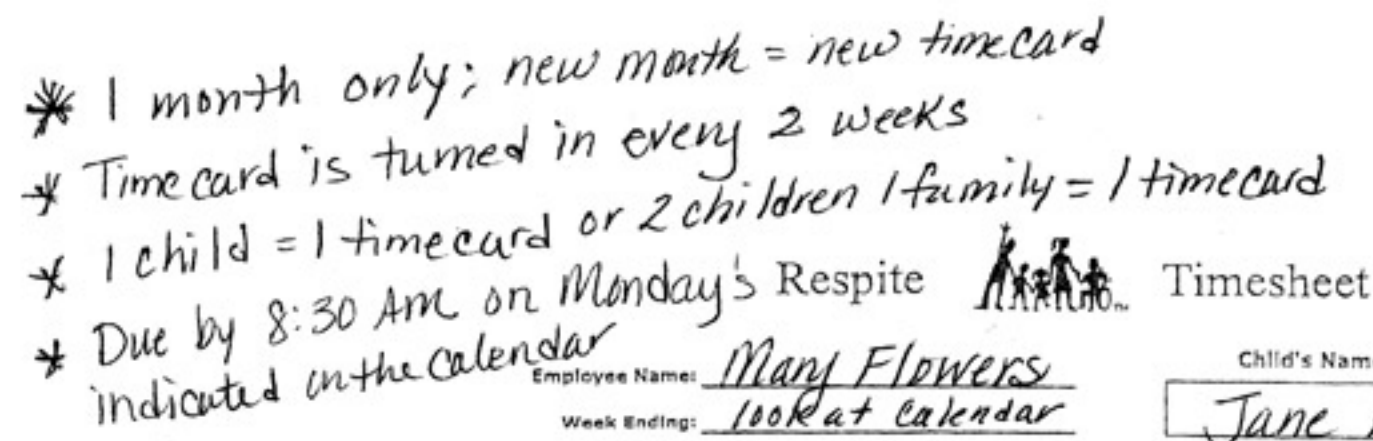 * 1 month only; new month = new timecard
* Timecard is turned in every 2 weeks
* 1 child = 1 timecard or 2 children 1 family = 1 timecard
* Due by 8:30 AM on Monday's
indicated on the calendar
Respite Timesheet
Employee Name: Mary Flowers
Week Ending: look at calendar
Child's Nam
Jane